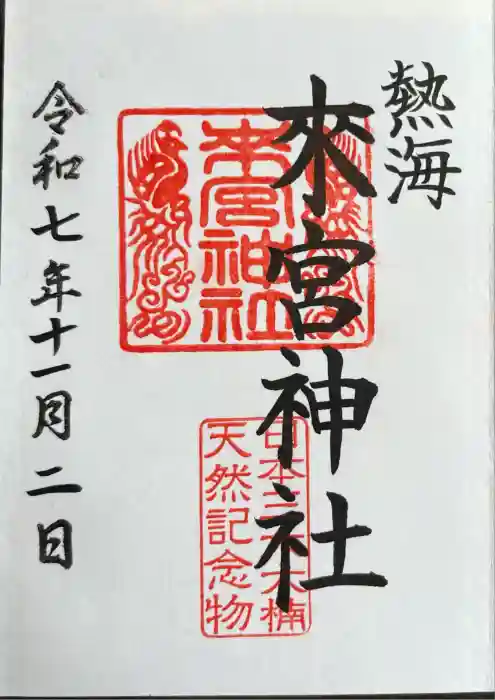 熱海
來宮神社
来宮神社
日本三大木楠
天然記念物
令和七年十一月二日